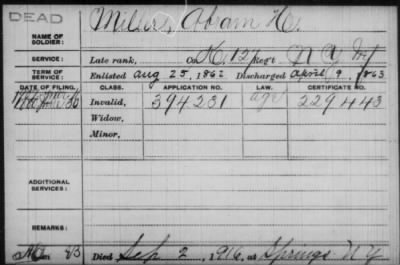 DEAD
NAME OF SOLDIER: Miller, Abram H.
SERVICE: Late rank, Co. K, 127 Reg't N Y Inf
TERM OF SERVICE: Enlisted Aug 25, 1862 Discharged April 9, 1863
DATE OF FILING. CLASS. APPLICATION NO. LAW. CERTIFICATE NO.
Invalid, 394231 229443
Widow,
Minor,
ADDITIONAL SERVICES:
REMARKS:
Died Sep 2, 1916, at Springs N Y